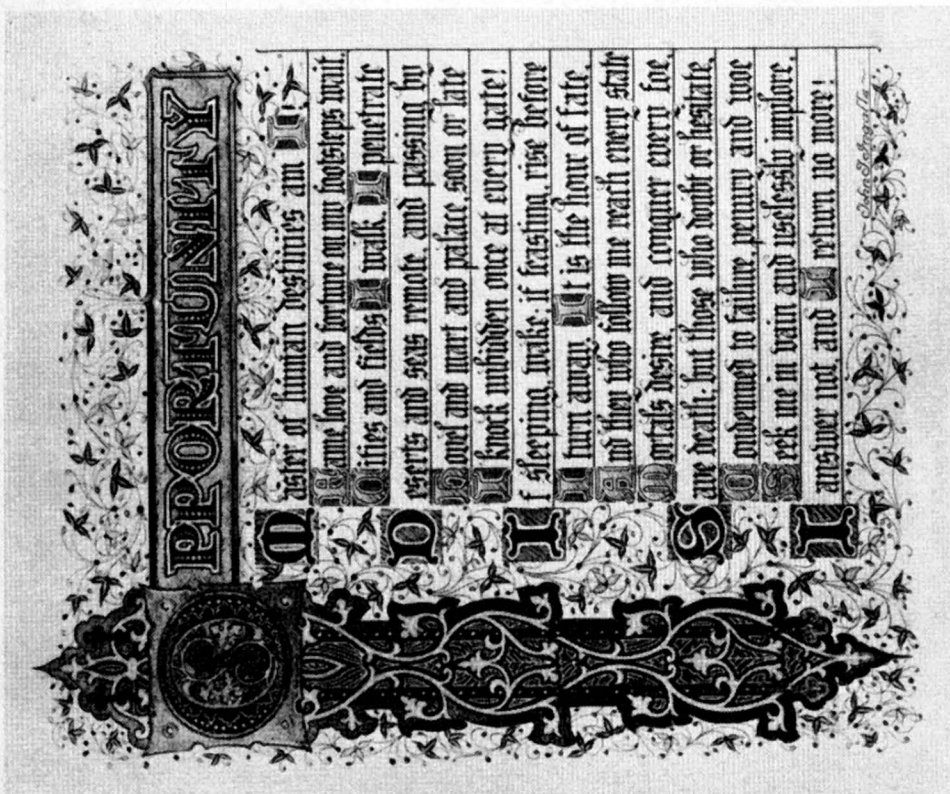 OPPORTUNITY
Master of human destinies am I
Fame love and fortune on my footsteps wait
Cities and fields I walk. I penetrate
Deserts and seas remote, and passing by
Hovel and mart and palace, soon or late
I knock unbidden once at every gate!
If sleeping, wake: if feasting, rise before
I turn away. It is the hour of fate,
And they who follow me reach every state
Mortals desire, and conquer every foe,
Save death: but those who doubt or hesitate,
Condemned to failure, penury and woe
Seek me in vain and uselessly implore.
I answer not, and I return no more!
John J Ingalls